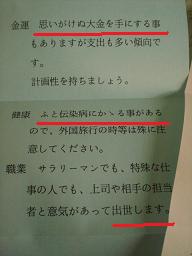 金運　思いがけぬ大金を手にする事
もありますが支出も多い傾向で
す。
計画性を持ちましょう。
健康　ふと伝染病にかゝる事がある
ので、外国旅行の時等は殊に注
意してください。
職業　サラリーマンでも、特殊な仕
事の人でも、上司や相手の担当
者と意気があって出世します。